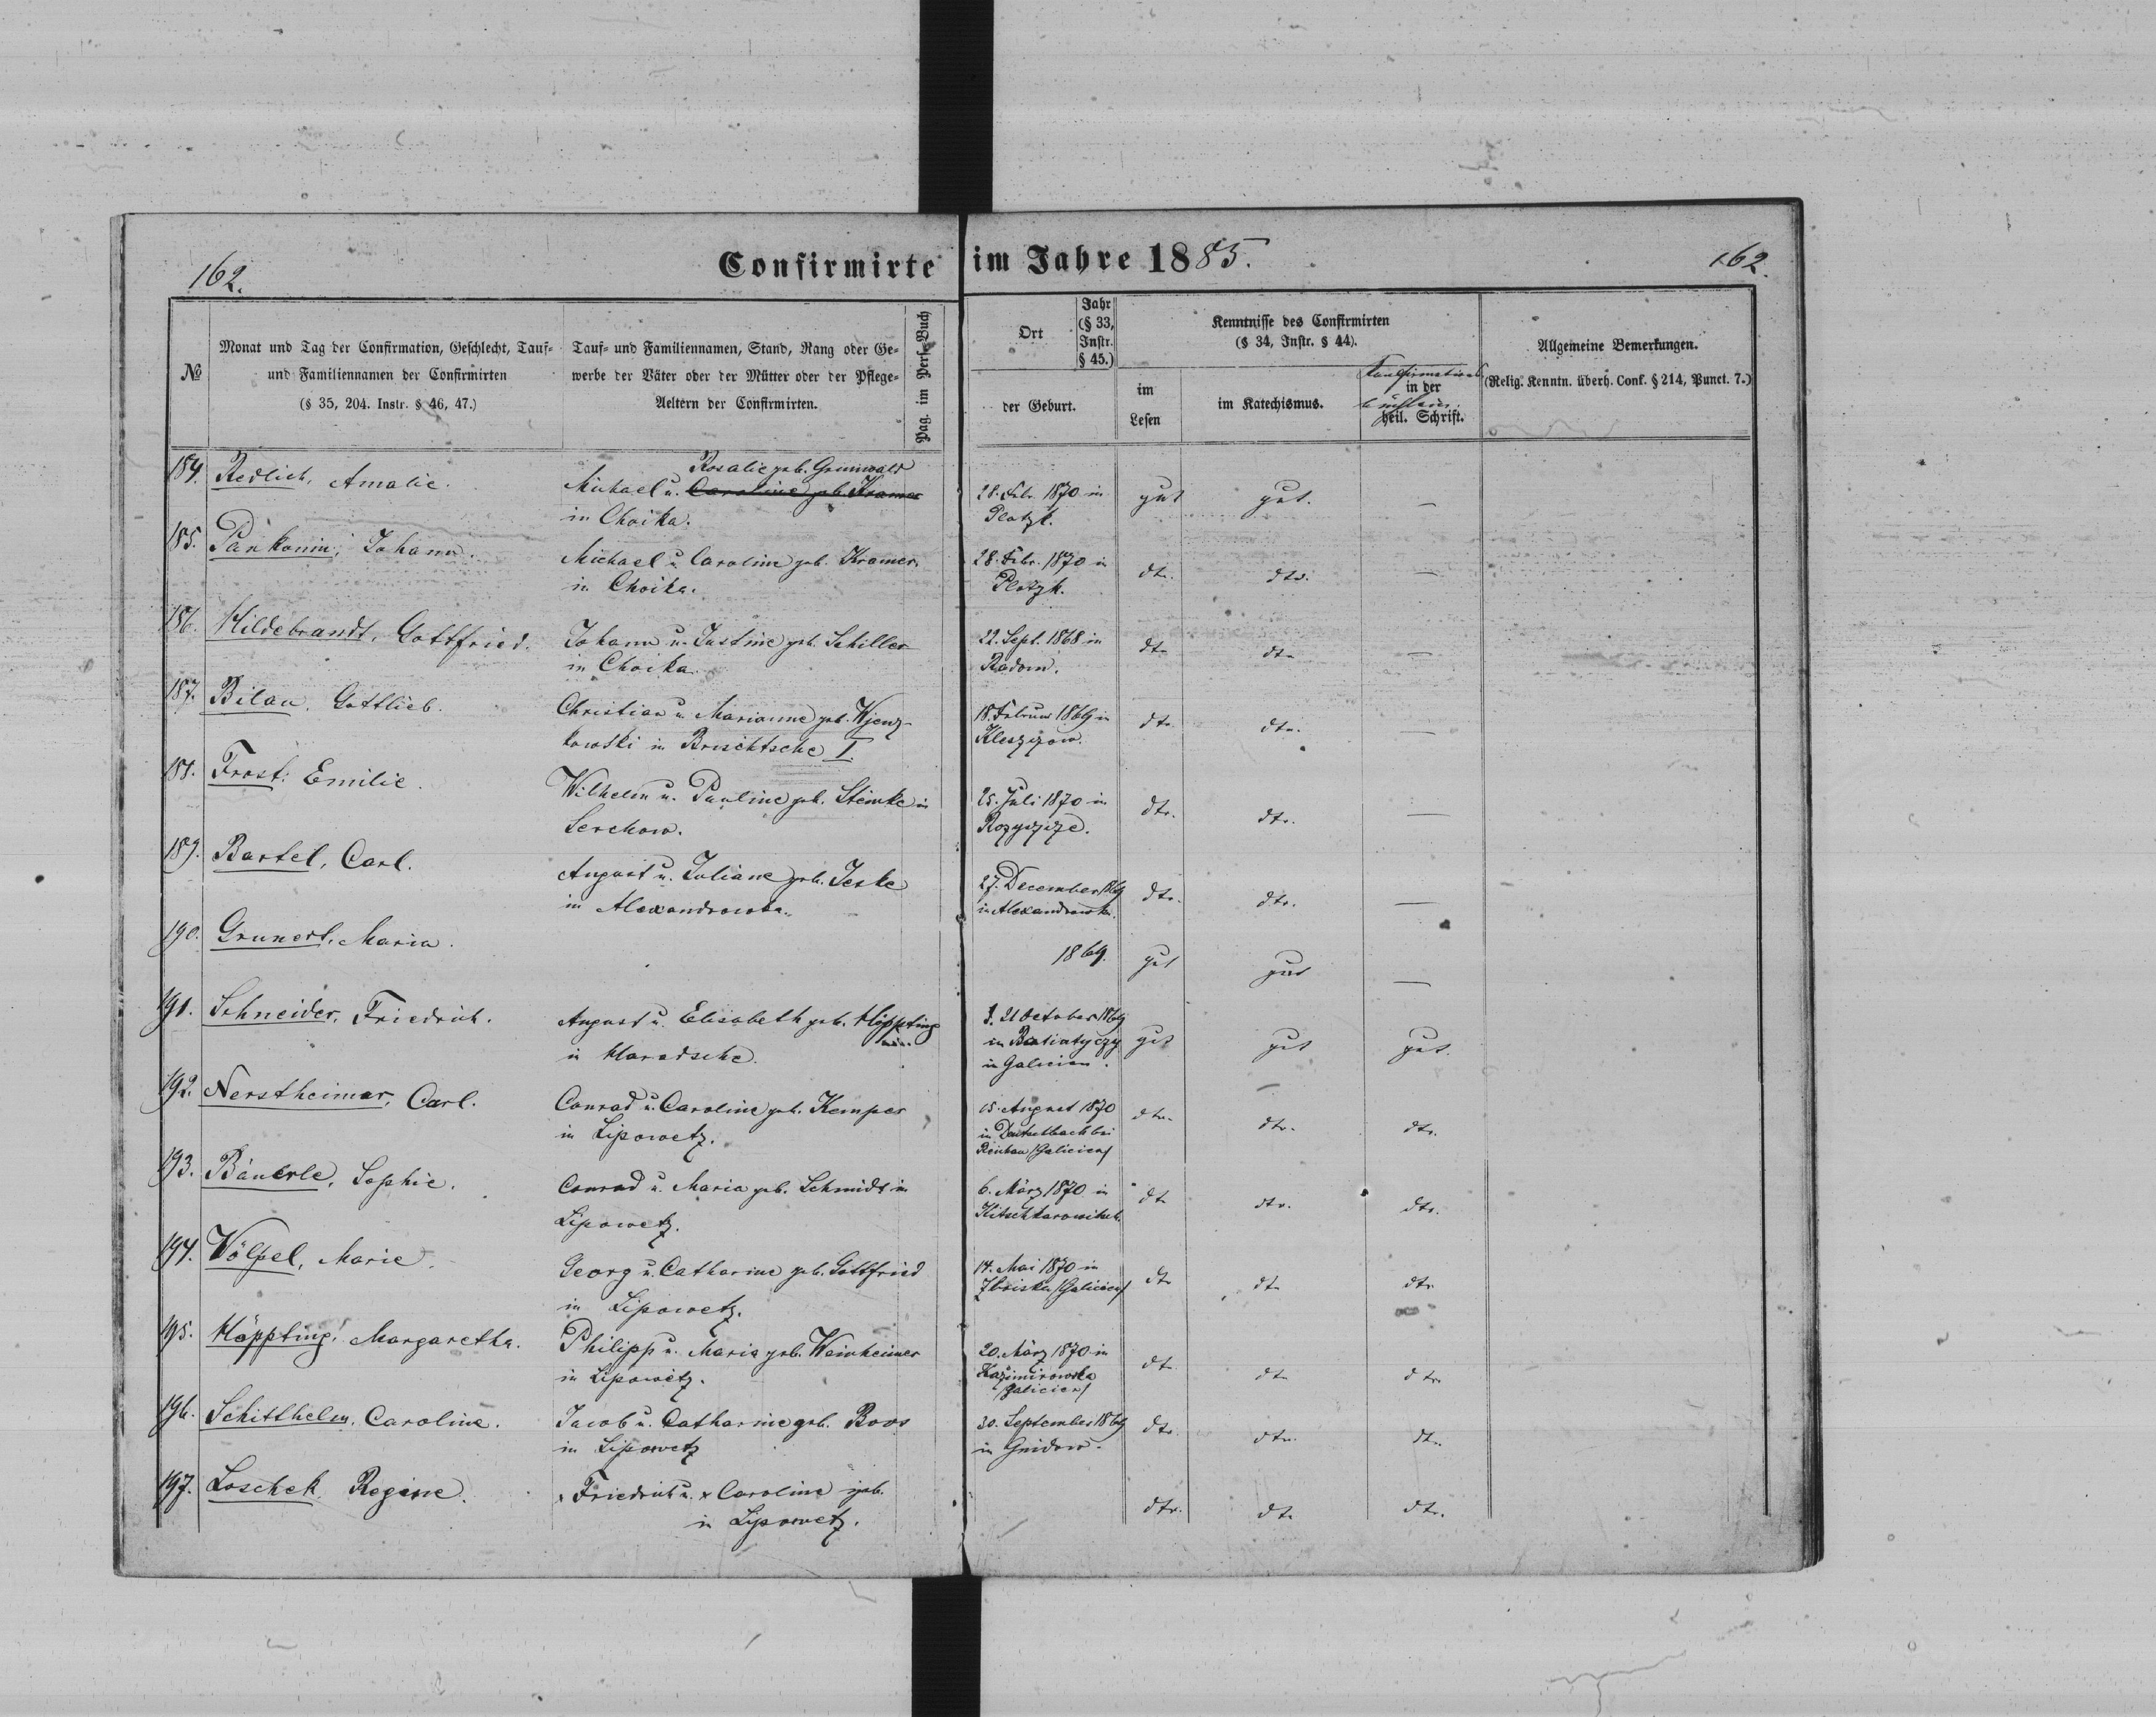 162.
Confirmirte im Jahre 1885.
162.
№
Monat und Tag der Confirmation, Geschlecht, Tauf-
und Familiennamen der Confirmirten
(§ 35, 204. Instr. § 46, 47.)
Tauf- und Familiennamen, Stand, Rang oder Ge-
werbe der Väter oder der Mütter oder der Pflege-
Aeltern der Confirmirten.
Pag. im Pers.-Buch
Ort
Jahr
(§ 33,
Instr.
§ 45.)
der Geburt.
Kenntnisse des Confirmirten
(§ 34, Instr. § 44).
im
Lesen
im Katechismus.
in der
heil. Schrift.
Allgemeine Bemerkungen.
(Relig. Kenntn. überh. Conf. § 214, Punct. 7.)
184. Redlich, Amalie.
Rosalie geb. Grunwald
Michael u. Caroline geb. Kramer
in Choika.
28. Febr. 1870 in
Plotzk.
gut gut. —
185. Pankonin, Johann.
Michael u. Caroline geb. Kramer,
in Choika.
28. Febr. 1870 in
Plotzk.
dto. dto. —
186. Hildebrandt, Gottfried.
Johann u. Justine geb. Schiller
in Choika.
22. Sept. 1868 in
Radom.
dto dto —
187. Bilau, Gottlieb.
Christian u. Marianne geb. Wjenz-
kowski in Brischtsche I.
18. Februar 1869 in
Kleszczow.
dto. dto. —
188. Frost, Emilie.
Wilhelm u. Pauline geb. Steinke in
Serchow.
25. Juli 1870 in
Rozyszcze.
dto. dto. —
189. Bartel, Carl.
August u. Juliane geb. Jeske
in Alexandrowka.
27. December 1869
in Alexandrowka.
dto. dto. —
190. Grunert, Maria.
1869.
gut gut —
191. Schneider, Friedrich.
August u. Elisabeth geb. Höppting
in Haradsche.
21 October 1869
in Batiatyczy
in Galicien.
gut gut gut.
192. Nerstheimer, Carl.
Conrad u. Caroline geb. Kemper
in Lipowetz.
15. August 1870
in bei
/Galicien/
dto. dto. dto.
193. Bäuerle, Sophie.
Conrad u. Maria geb. Schmidt in
Lipowetz.
6. März 1870 in
dto dto. dto.
194. Wölfel, Marie.
Georg u. Catharine geb. Gottfried
in Lipowetz.
14. Mai 1870 in
Zboiska /Galicien/
dto dto dto.
195. Höppting, Margaretha.
Philipp u. Maria geb. Weinheimer
in Lipowetz.
20. März 1870 in
Kazimirowka
/Galicien/
dto dto dto.
196. Schitthelm, Caroline.
Jacob u. Catharine geb. Boos
in Lipowetz
30. September 1869
in Gnidow.
dto. dto. dto.
197. Loschek Regine.
Friedrich u. Caroline geb.
in Lipowetz.
dto. dto dto.